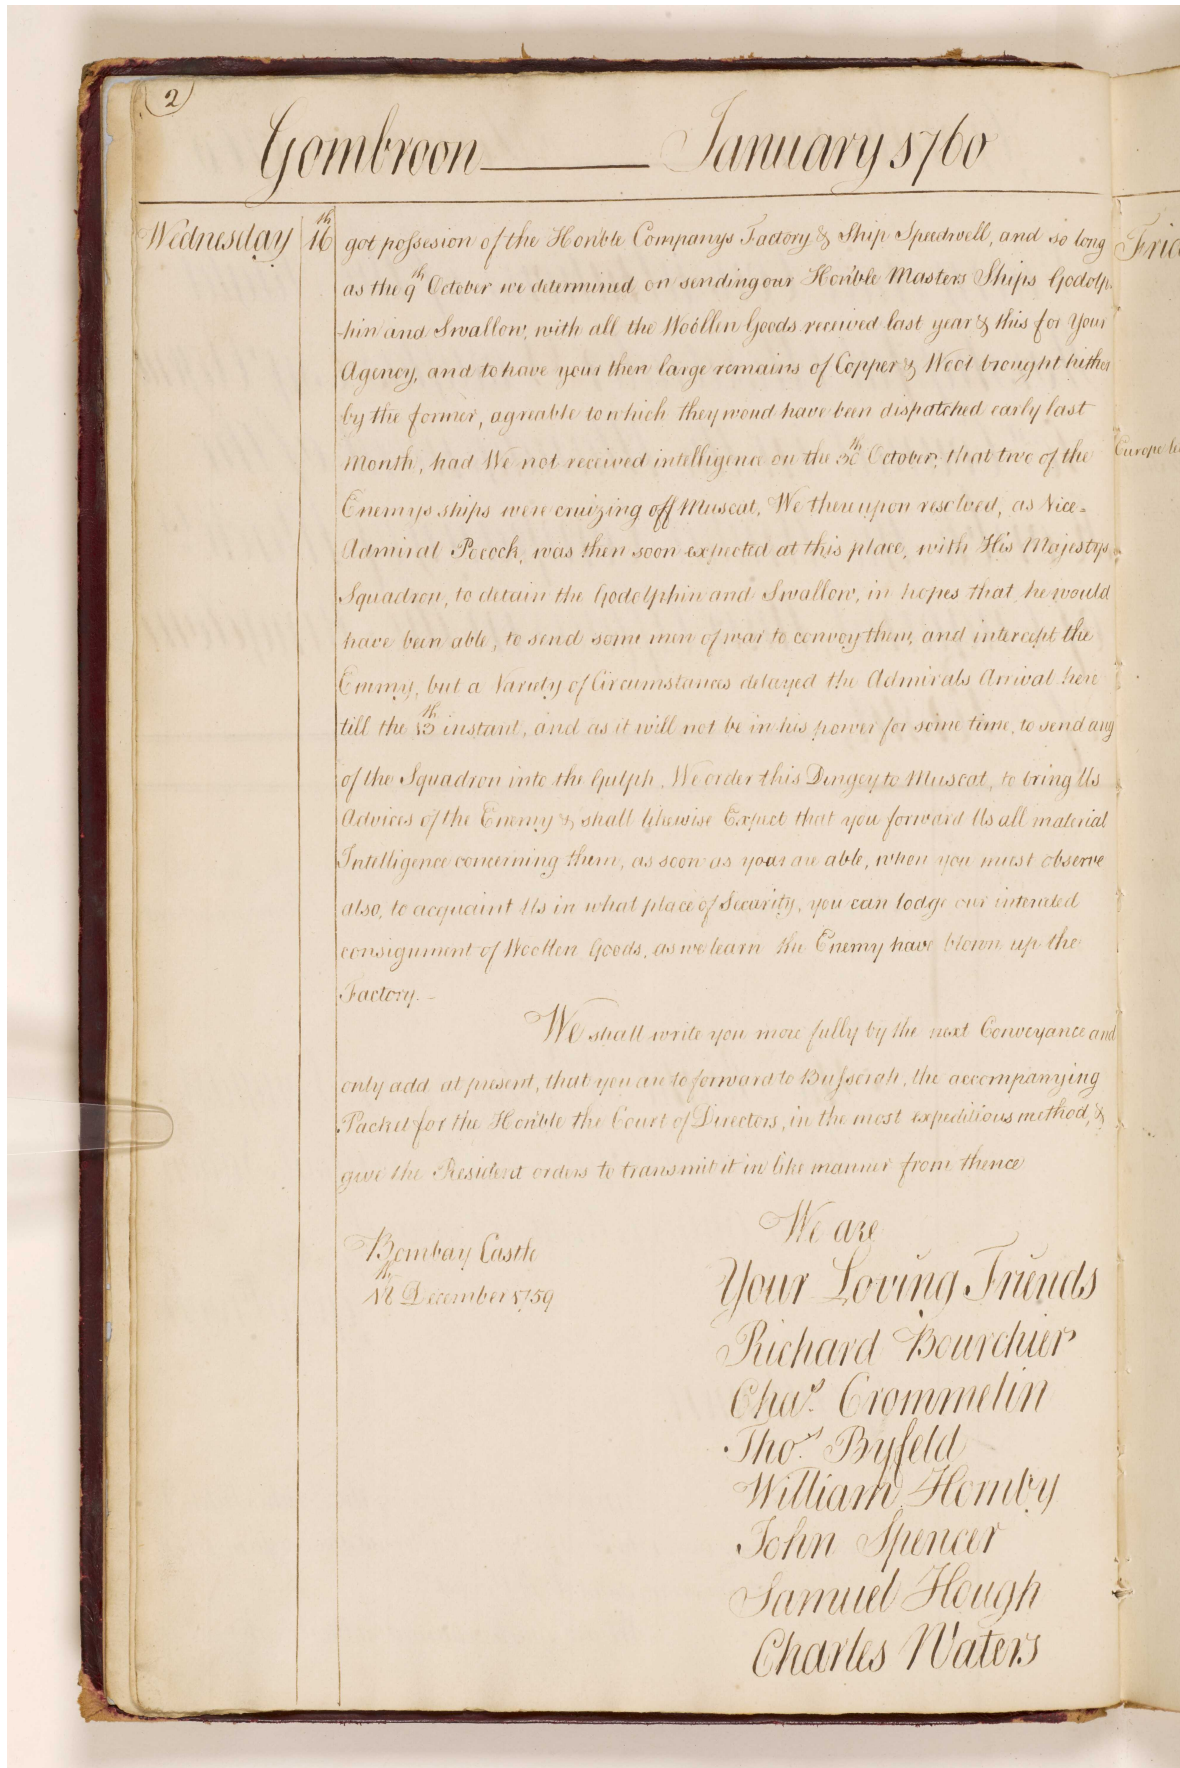 2
Gombroon January 1760
Wednesday 16th got possesion of the Honble Companys Factory & Ship Speedwell, and so long
as the 9th October we determined on sending our Honble Masters Ships Godolp-
-hin and Swallow, with all the Woollen Goods received last year & this for Your
Agency, and to have your then large remains of Copper & Wool brought hither
by the former, agreable to which they woud have been dispatched early last
Month, had We not received intelligence on the October, that two of the
Enemys ships were cruizing off Muscat, We thereupon resolved, as Vice-
Admiral Pocock, was then soon expected at this place, with His Majestys
Squadron, to detain the Godolphin and Swallow, in hopes that he would
have been able, to send some men of war to convoy them, and intercept the
Enemy, but a Variety of Circumstances delayed the Admirals Arrival here
till the 13th instant, and as it will not be in his power for some time, to send any
of the Squadron into the Gulph, We order this Dingey to Muscat, to bring Us
Advices of the Enemy & shall likewise Expect that you forward Us all material
Intelligence concerning them, as soon as you are able, when you must observe
also, to acquaint Us in what place of Security, you can lodge our intended
consignment of Woollen Goods, as we learn the Enemy have blown up the
Factory.
We shall write you more fully by the next Conveyance and
only add at present, that you are to forward to Bussorah, the accompanying
Packet for the Honble the Court of Directors, in the most expeditious method, &
give the Resident orders to transmit it in like manner from thence
We are
Bombay Castle
18th December 1759
Your Loving Friends
Richard Bourchier
Chas. Crommelin
Thos. Byfeld
William Hornby
John Spencer
Samuel Hough
Charles Waters